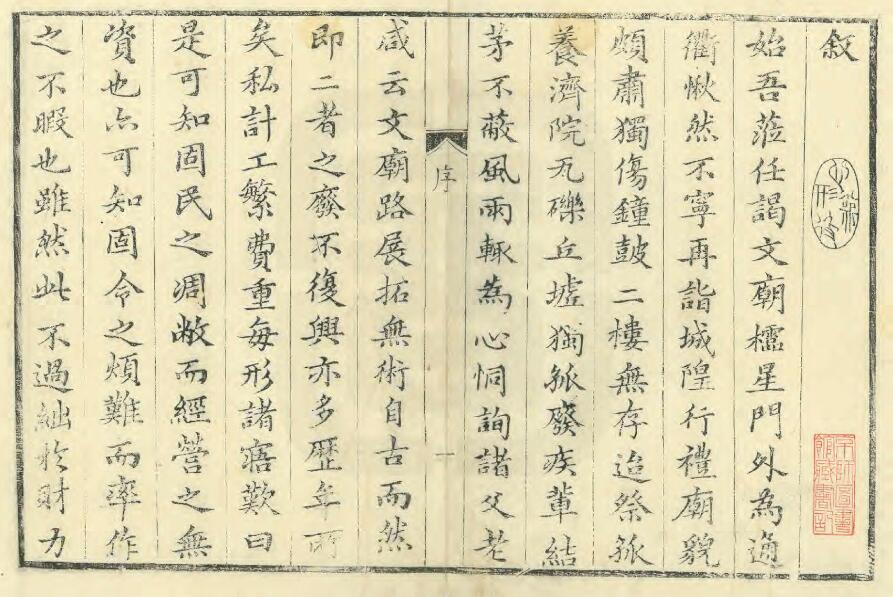 敘
始吾蒞任謁文廟櫺星門外為通
衢愀然不寧再詣城隍行禮廟貌
頗肅獨傷鐘鼓二樓無存迨祭孤
養濟院瓦礫丘墟獨孤廢疾輩結
茅不蔽風雨輙為心恫詢諸父老
序
一
咸云文廟路展拓無術自古而然
即二者之廢不復興亦多歷年所
矣私計工繁費重每形諸寤歎曰
是可知固民之凋敝而經營之無
資也亦可知固令之煩難而率作
之不暇也雖然此不過絀於財力
京師圖書
館藏書印